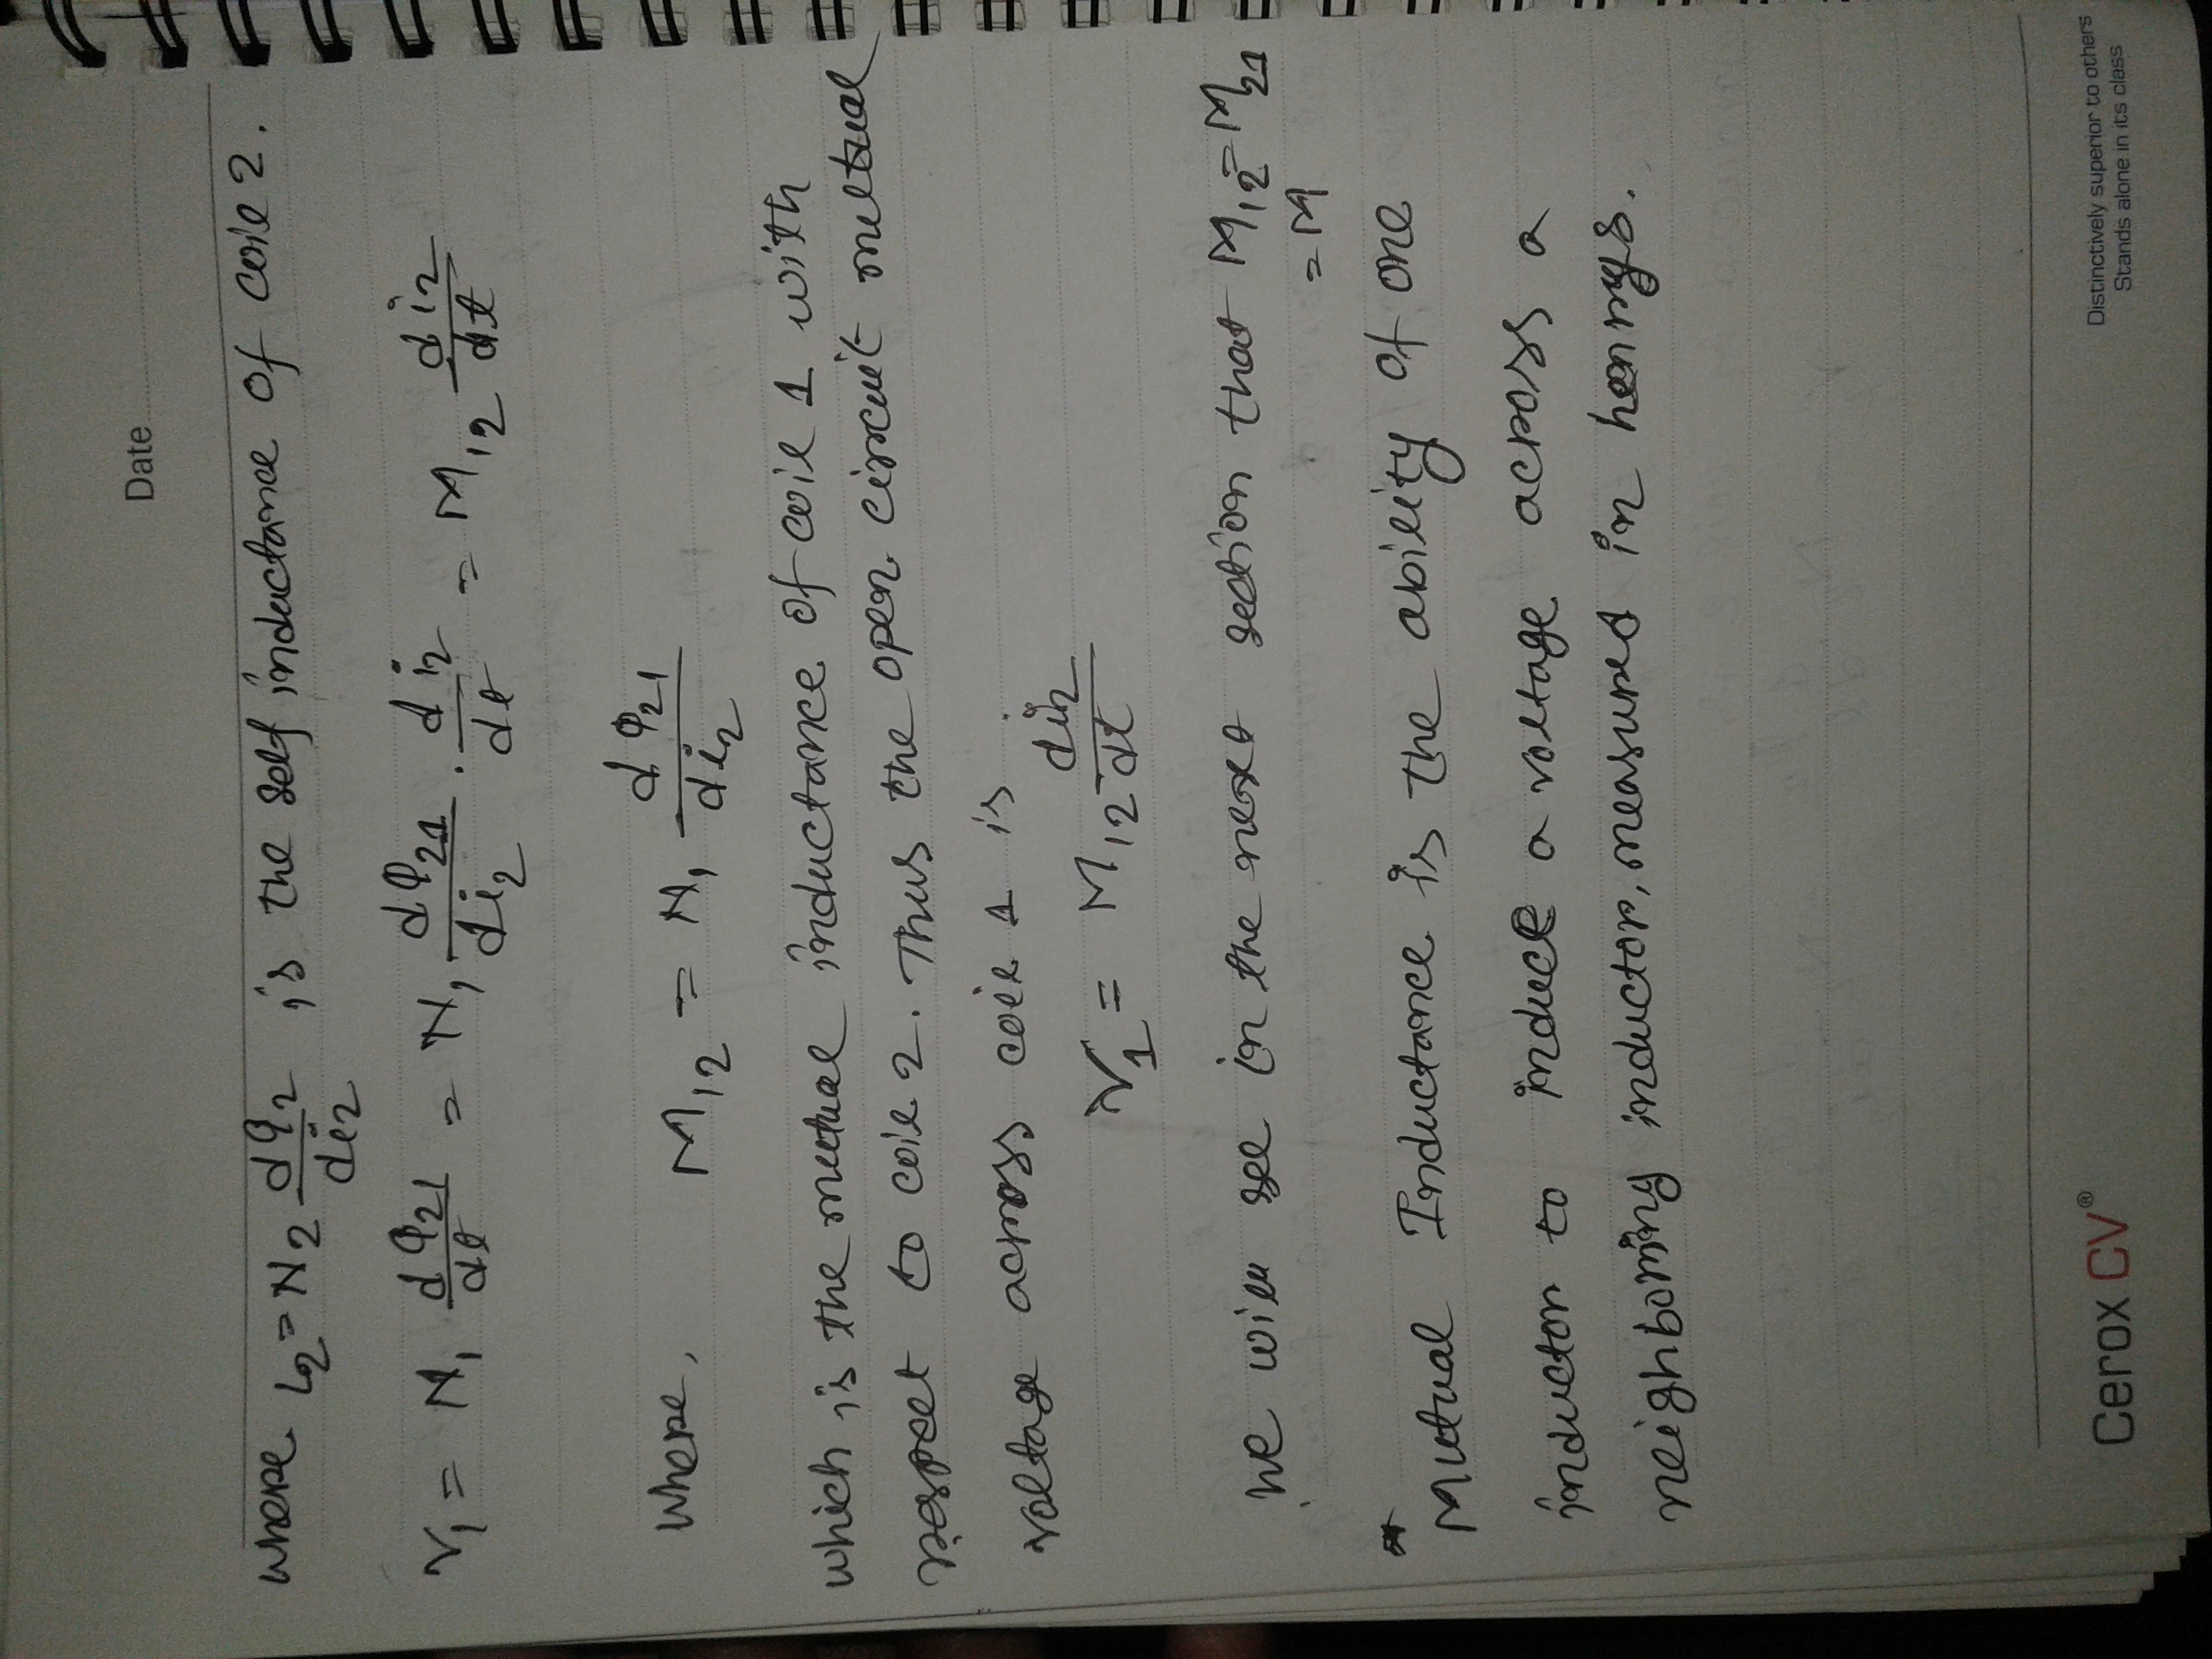 Date
where L₂ = N₂ dφ₂/di₂ is the self inductance of coil 2.
V₁ = N₁ dφ₂₁/dt = N₁ dφ₂₁/di₂ . di₂/dt = M₁₂ di₂/dt
Where, M₁₂ = N₁ dφ₂₁/di₂
which is the mutual inductance of coil 1 with
respect to coil 2. Thus the open circuit mutual
voltage across coil 1 is
V₁ = M₁₂ di₂/dt
We will see in the next section that M₁₂ = M₂₁
= M
* Mutual Inductance is the ability of one
inductor to induce a voltage across a
neighboring inductor, measured in henrys.
Cerox CV®
Distinctively superior to others
Stands alone in its class